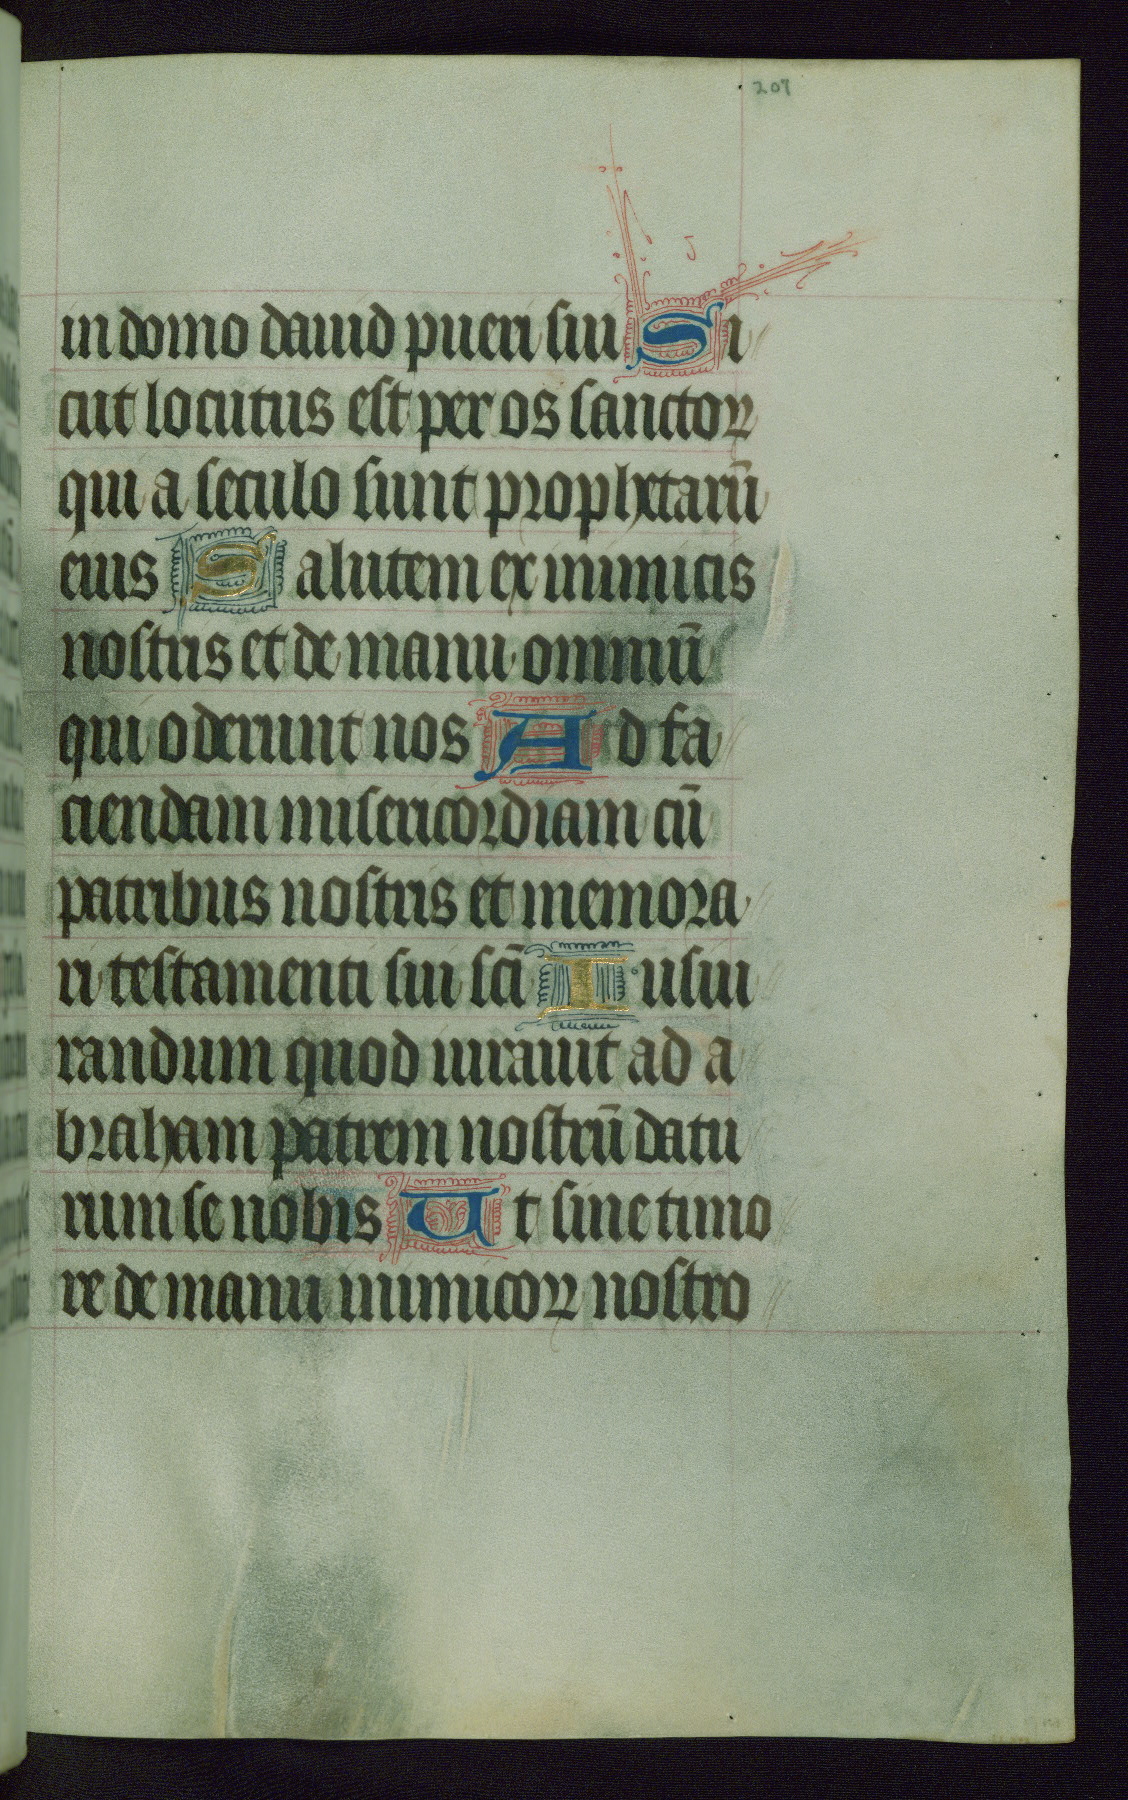 207
in domo dauid pueri sui Si
cut locutus est per os sanctoꝝ
qui a seculo sunt prophetarū
eius Salutem ex inimicis
nostris et de manu omniū
qui oderunt nos Ad fa
ciendam misericordiam cū
patribus nostris et memora
ri testamenti sui scī Iusiu
randum quod iurauit ad a
braham patrem nostrū datu
rum se nobis Ut sine timo
re de manu inimicoꝝ nostro